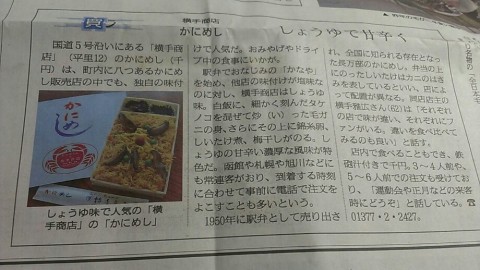 買う
横手商店
かにめし
しょうゆで甘辛く
国道5号沿いにある「横手商
店」(平里12)のかにめし(千
円)は、町内に八つあるかにめ
し販売店の中でも、独自の味付
けで人気だ。おみやげやドライ
ブ中の食事にいかが。
駅弁でおなじみの「かなや」
を始め、他店の味付けが塩味な
のに対し、横手商店はしょうゆ
味。白飯に、細かく刻んだタケ
ノコを混ぜて炒（い）った毛ガ
ニの身、さらにその上に錦糸卵、
しいたけ煮、梅干しがのる。し
ょうゆの甘辛い濃厚な風味が特
色だ。函館や札幌や旭川などに
も常連客がおり、到着する時刻
に合わせて事前に電話で注文を
よこすことも多いという。
1950年に駅弁として売り出さ
れ、全国に知られる存在となっ
た長万部のかにめし。弁当の上
にのったしいたけはカニのはさ
みを表しているといい、店によ
って配置が異なる。同店店主の
横手雅広さん(62)は「それぞれ
の店で味が違い、それぞれにフ
ァンがいる。違いを食べ比べて
みるのも良い」と話す。
店内で食べることもでき、鉄
砲汁付きで千円。3～4人前や、
5～6人前での注文も受けてお
り、「運動会や正月などの来客
時にどうぞ」と話している。☎
01377・2・2427。
かにめし
しょうゆ味で人気の「横
手商店」の「かにめし」